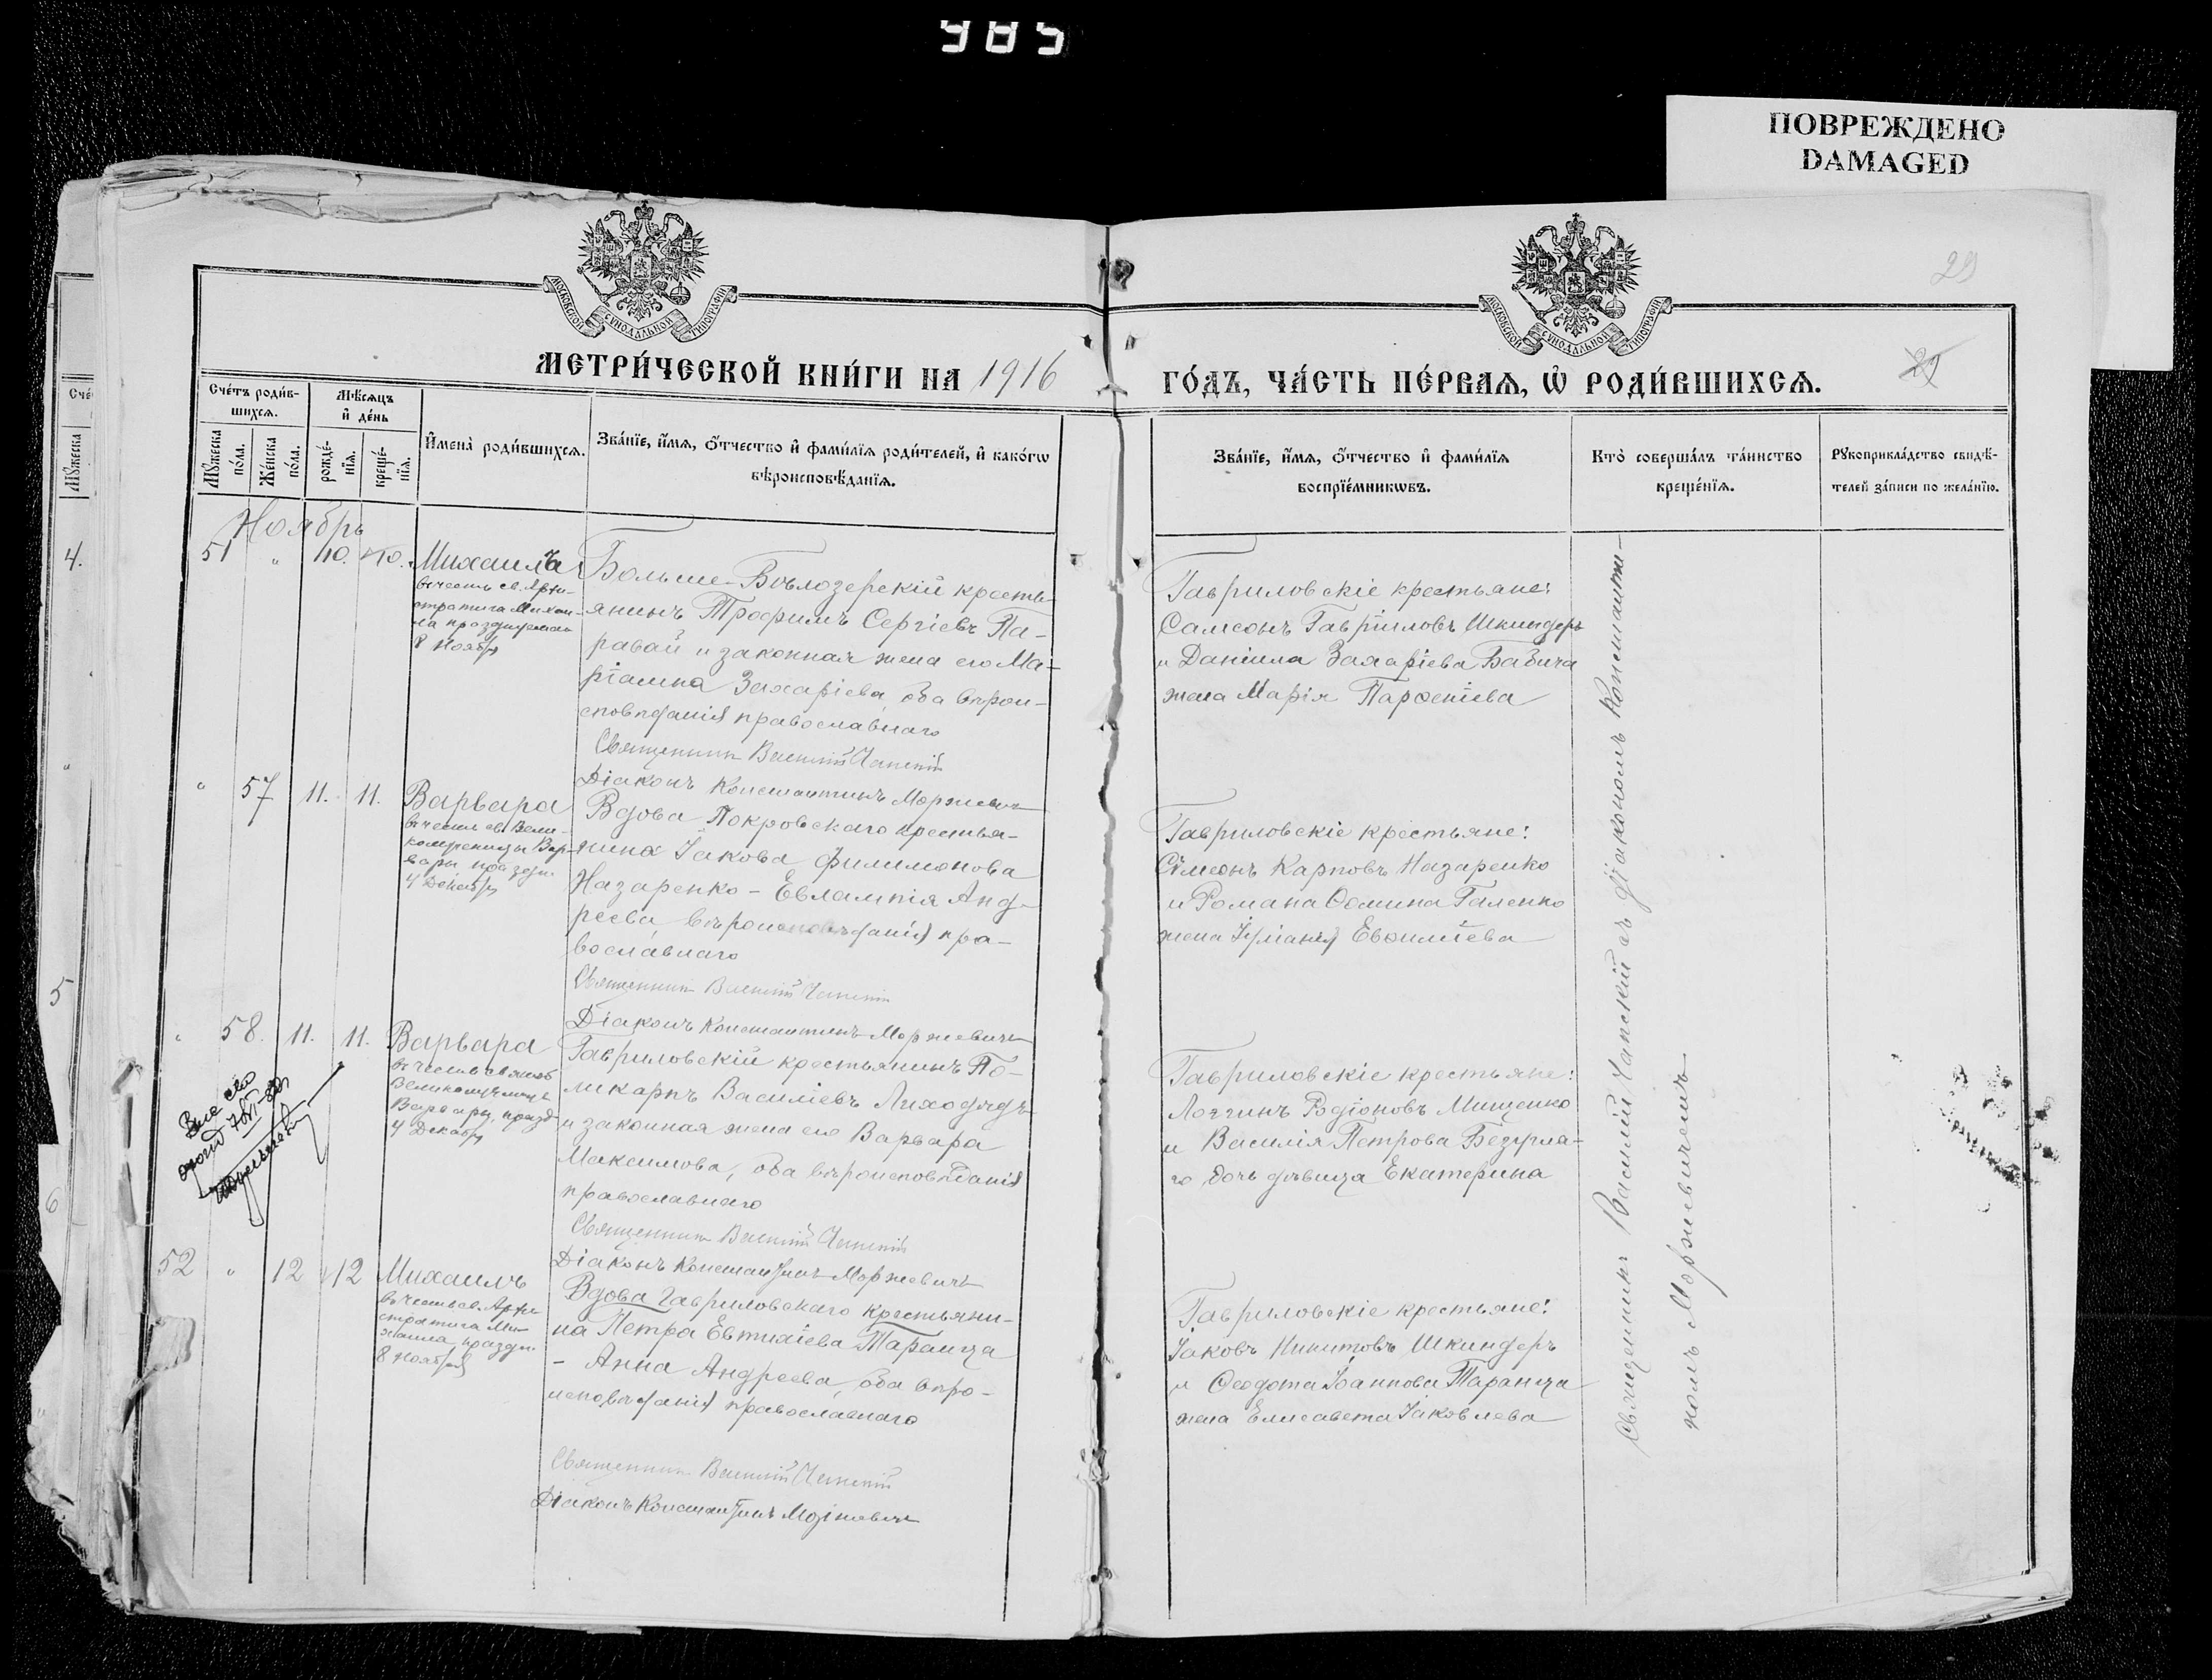 985
ПОВРЕЖДЕНО
DAMAGED
МОСКОВСКОЙ СѴНОДАЛЬНОЙ ТИПОГРАФІИ
МОСКОВСКОЙ СѴНОДАЛЬНОЙ ТИПОГРАФІИ
29
29
МЕТРИ́ЧЕСКОЙ КНИ́ГИ НА 1916
ГО́ДЪ, ЧА́СТЬ ПЕ́РВАЯ, Ѡ҆ РОДИ́ВШИХСЯ.
Сче́тъ роди́в-
шихся.
Мꙋ́жеска по́ла.
Же́нска по́ла.
Мѣ́сяцъ
и҆ де́нь
рожде́-
нїя.
креще́-
нїя.
И҆мена̀ роди́вшихся.
Зва́нїе, и҆́мя, ѻ҆́тчество и҆ фами́лїя роди́телей, и҆ како́гѡ
вѣроисповѣ́данїя.
Зва́нїе, и҆́мя, ѻ҆́тчество и҆ фами́лїя
воспрїе́мникѡвъ.
Кто̀ соверша́лъ та́инство
креще́нїя.
Рꙋкоприкла́дство свидѣ́-
телей за́писи по жела́нїю.
Ноябрь
51 " 10. 10. Михаилъ
въ честь св. Архи-
стратига Михаи-
ла празднуемаго
8 Ноября
Больше-Бѣлозерскій кресть-
янинъ Трофимъ Сергіевъ Па-
равай и законная жена его Ма-
ріамна Захаріева, оба вѣрои-
сповѣданія православнаго
Священникъ Василій Чапскій
Діаконъ Константинъ Моржевичъ
Гавриловскіе крестьяне:
Самсонъ Гавріиловъ Шкиндеръ
и Даніила Захаріева Бабича
жена Марія Парѳеніева
" 57 11. 11. Варвара
въ честь св. Вели-
комученицы Вар-
вары праздн.
4 Декабря
Вдова Покровскаго крестья-
нина Іакова Филимонова
Назаренко - Евлампія Анд-
реева вѣроисповѣданія пра-
вославнаго
Священникъ Василій Чапскій
Діаконъ Константинъ Моржевичъ
Гавриловскіе крестьяне:
Сѵмеонъ Карповъ Назаренко
и Романа Ѳомина Галенко
жена Іуліанія Евѳиміева
" 58. 11. 11. Варвара
Великомученицы
Варвары, празд
4 Декабря
Гавриловскій крестьянинъ По-
ликарпъ Василіевъ Лиходѣдъ
и законная жена его Варвара
Максимова, оба вѣроисповѣданія
православнаго
Священникъ Василій Чапскій
Діаконъ Константинъ Моржевичъ
Гавриловскіе крестьяне:
Логгинъ Родіоновъ Мищенко
и Василія Петрова
дочь дѣвица Екатерина
52 " 12 12 Михаилъ
въ честь св. Архи
стратига Ми-
хаила праздн.
8 Ноября
Вдова Гавриловскаго крестьяни-
на Петра Евтихіева Таранца
- Анна Андреева, оба вѣро-
исповѣданія православнаго
Священникъ Василій Чапскій
Діаконъ Константинъ Моржевичъ
Гавриловскіе крестьяне:
Іаковъ Никитовъ Шкиндеръ
и Ѳеодота Іоаннова Таранца
жена Елисавета Іаковлева
Священникъ Василій Чапскій съ діакономъ Константи-
номъ Моржевичемъ
Сче
Мꙋжеска
4.
5
6